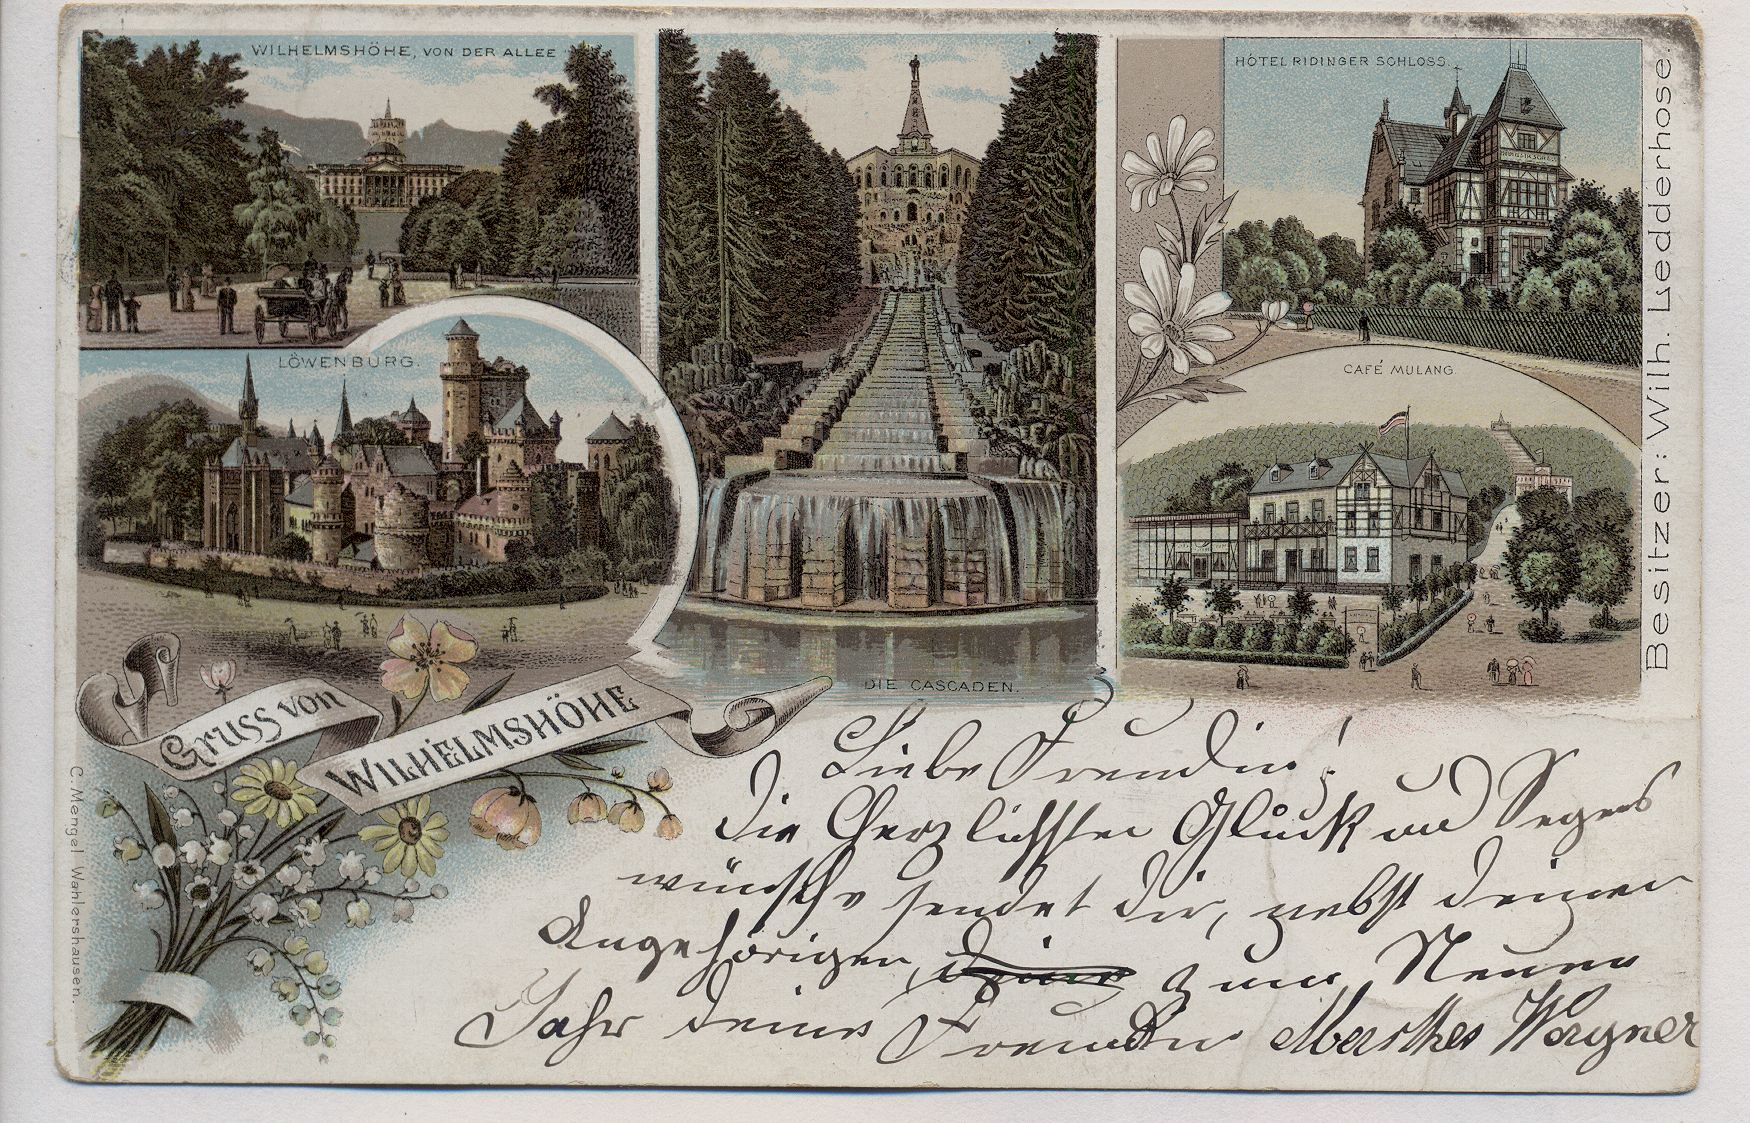 WILHELMSHÖHE, VON DER ALLEE
LÖWENBURG.
DIE CASCADEN.
HÓTEL RIDINGER SCHLOSS.
CAFÉ MULANG
Besitzer: Wilh. Ledderhose.
Gruss von
WILHELMSHÖHE
C. Mengel Wahlershausen.
Liebe Freundin!
Die Herzlichsten Glück und Segens
wünsche sendet dir, nebst deinen
Angehörigen, zum Neuen
Jahr deine Freundin Marthes Wagner